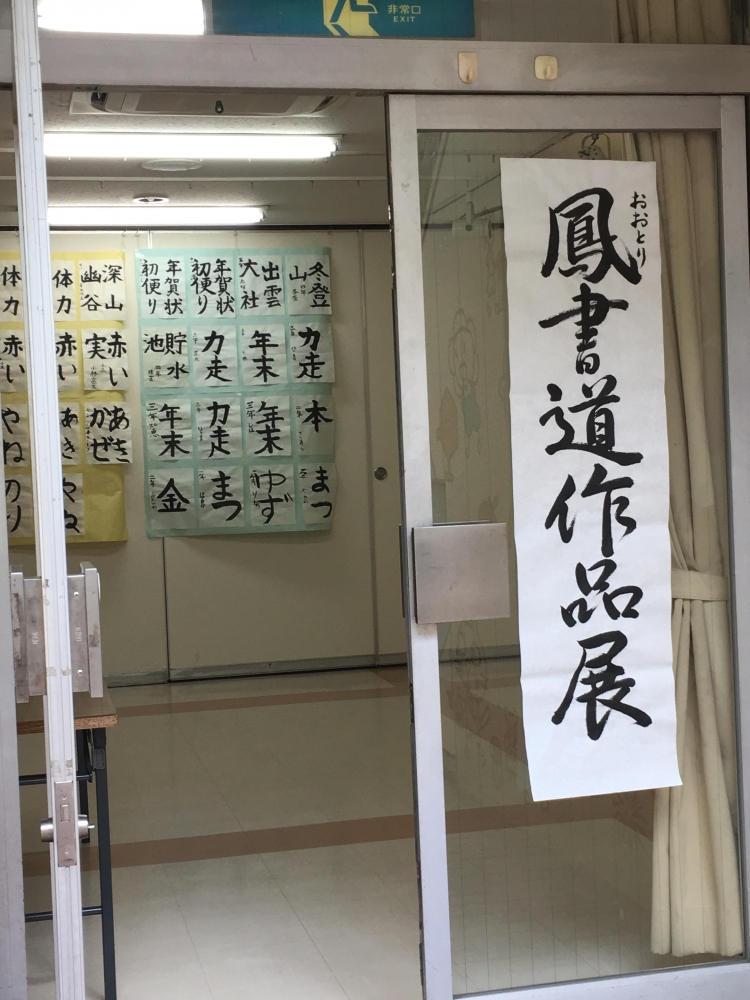 非常口
EXIT
おおとり
鳳書道作品展
冬登山
出雲大社
年賀状初便り
年賀状初便り
力走
年末
力走
貯水池
本
年末
力走
年末
まつ
ゆず
まつ
金
深山幽谷
体力
体力
赤い実
赤い
赤い
あきかぜ
あき
やね
やね
のり